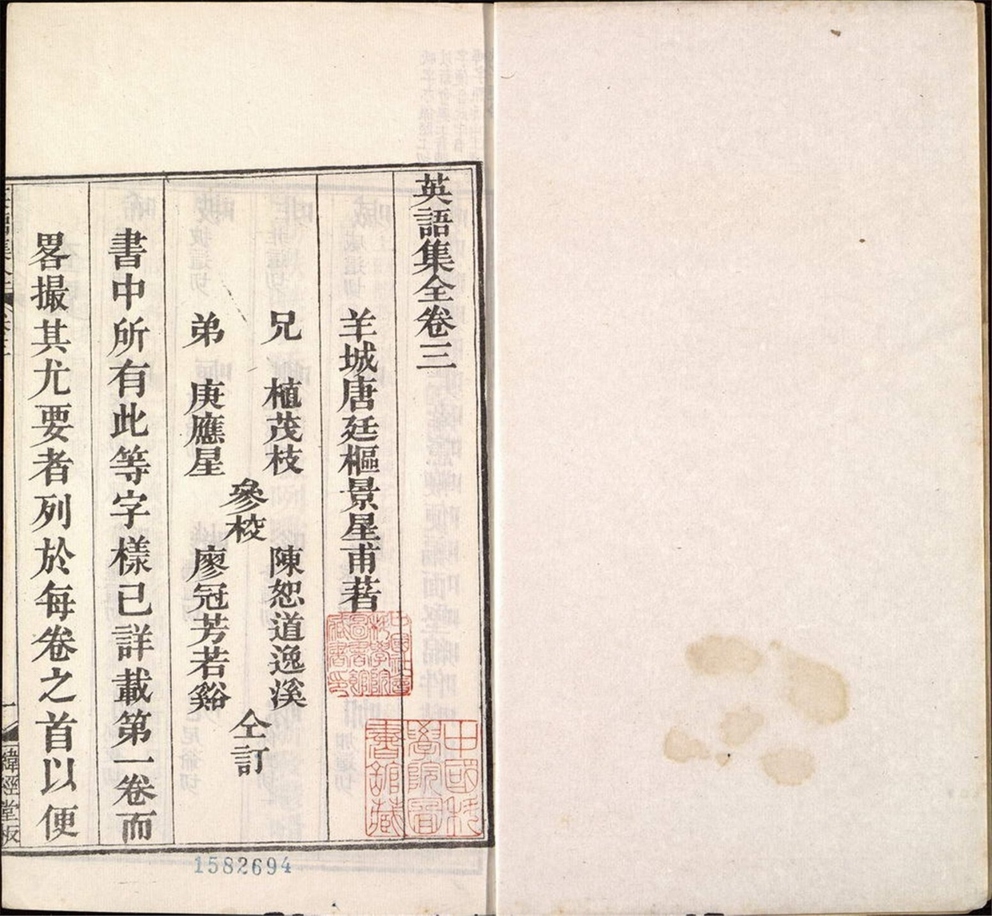 英語集全卷三
羊城唐廷樞景星甫著
兄 植茂枝
弟 庚應星
參校
陳恕道逸溪
廖冠芳若谿
仝訂
書中所有此等字樣已詳載第一卷而
畧撮其尤要者列於每卷之首以便
緯經堂板
中國科學院圖書館藏
1582694